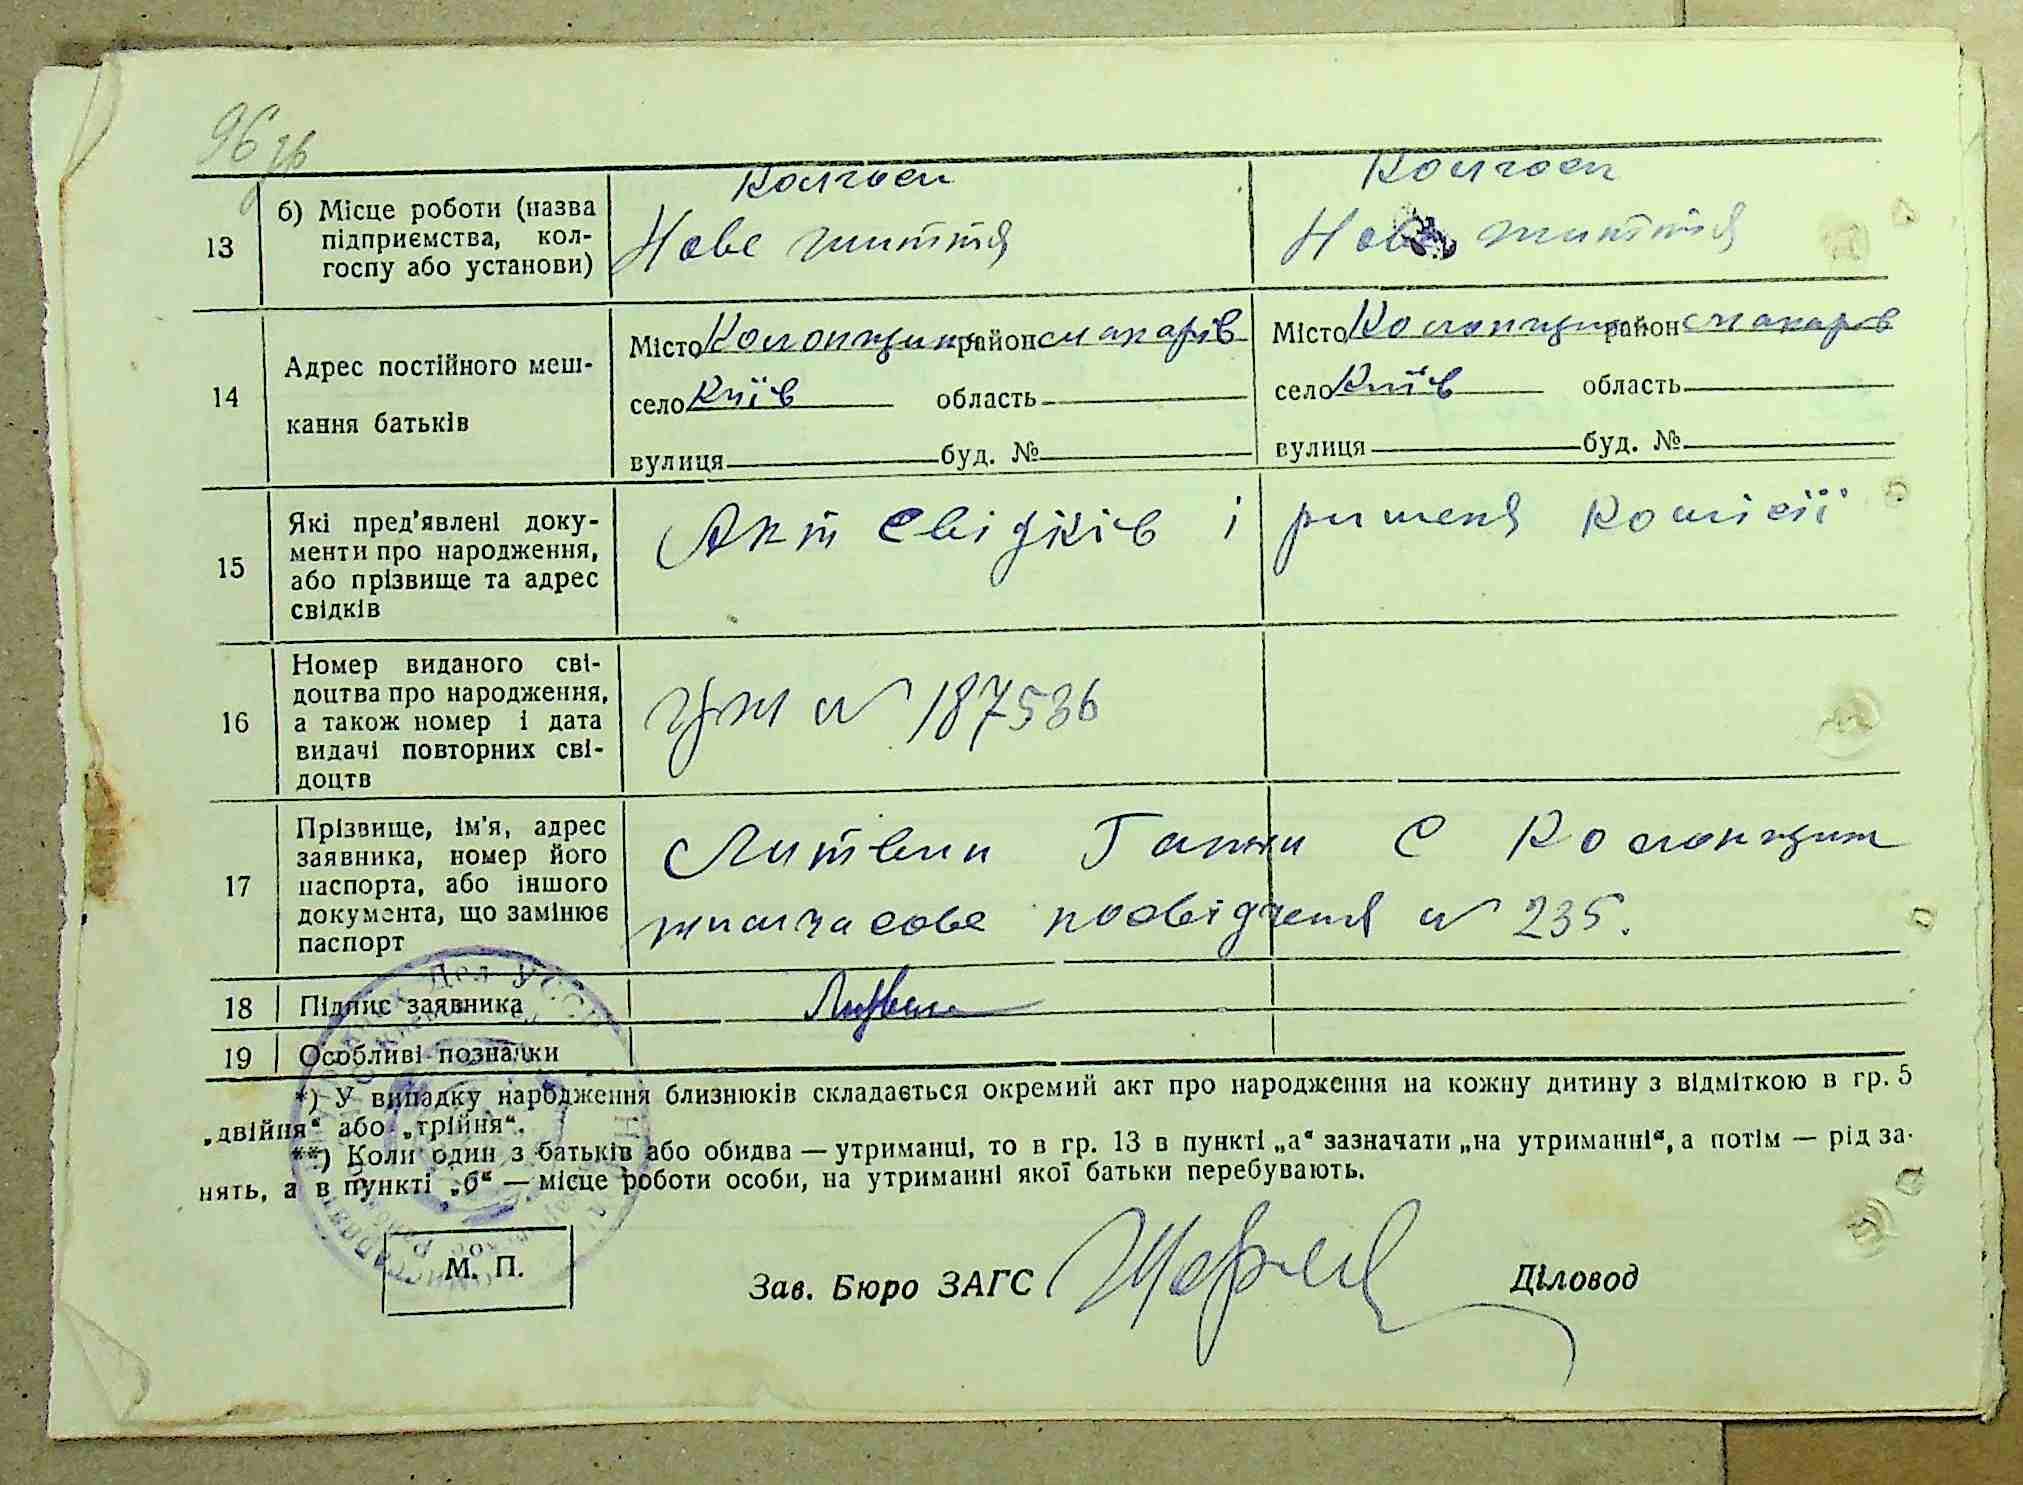 96 зв
13 б) Місце роботи (назва підприємства, колгоспу або установи)
Колгосп
Нове життя
Колгосп
Нове життя
14 Адрес постійного мешкання батьків
Місто Колонщина район Макарів
село Київ область
вулиця буд. №
Місто Колонщина район Макарів
село Київ область
вулиця буд. №
15 Які пред'явлені документи про народження, або прізвище та адрес свідків
Акт свідків і рішеня комісії
16 Номер виданого свідоцтва про народження, а також номер і дата видачі повторних свідоцтв
№ 187536
17 Прізвище, ім'я, адрес заявника, номер його паспорта, або іншого документа, що замінює паспорт
Литвин Ганни С Колонщина
тимчасове посвідченя № 235.
18 Підпис заявника
Литвин
19 Особливі позначки
*) У випадку народження близнюків складається окремий акт про народження на кожну дитину з відміткою в гр. 5
„двійня“ або „трійня“.
**) Коли один з батьків або обидва — утриманці, то в гр. 13 в пункті „а“ зазначати „на утриманні“, а потім — рід за-
нять, а в пункті „б“ — місце роботи особи, на утриманні якої батьки перебувають.
М. П.
Зав. Бюро ЗАГС
Діловод